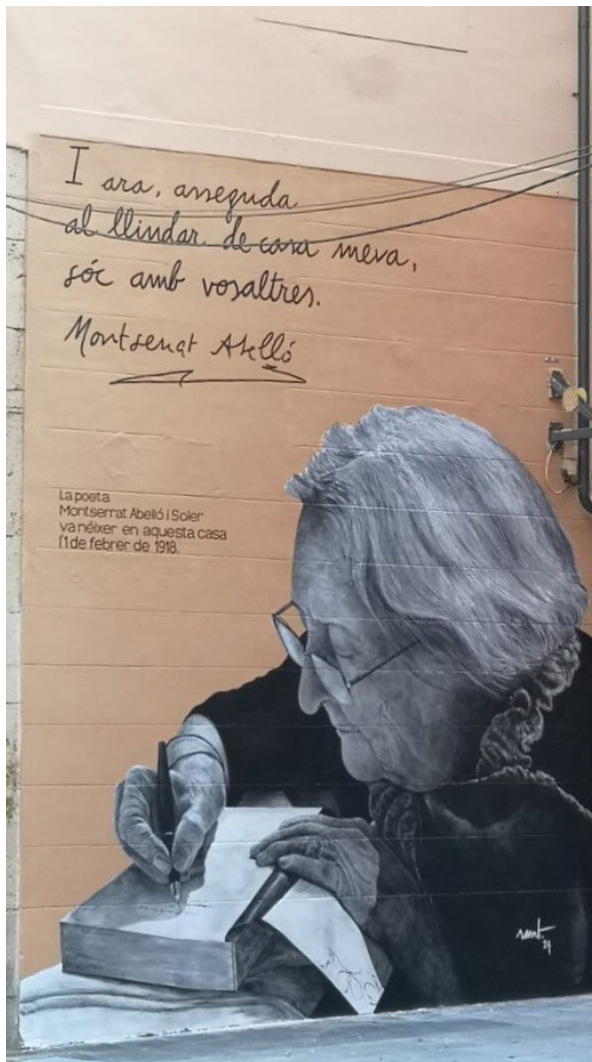 I ara, asseguda
al llindar de casa meva,
sóc amb vosaltres.
Montserrat Abelló
La poeta
Montserrat Abelló i Soler
va néixer en aquesta casa
l'1 de febrer de 1918.